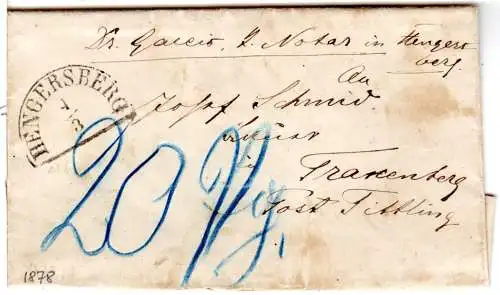 Dr. Gaccis, k. Notar in Hengers
berg.
An
HENGERSBERG
1/3
Josef Schmid
in Traxenberg
Post Tittling
20 Pfg.
1878